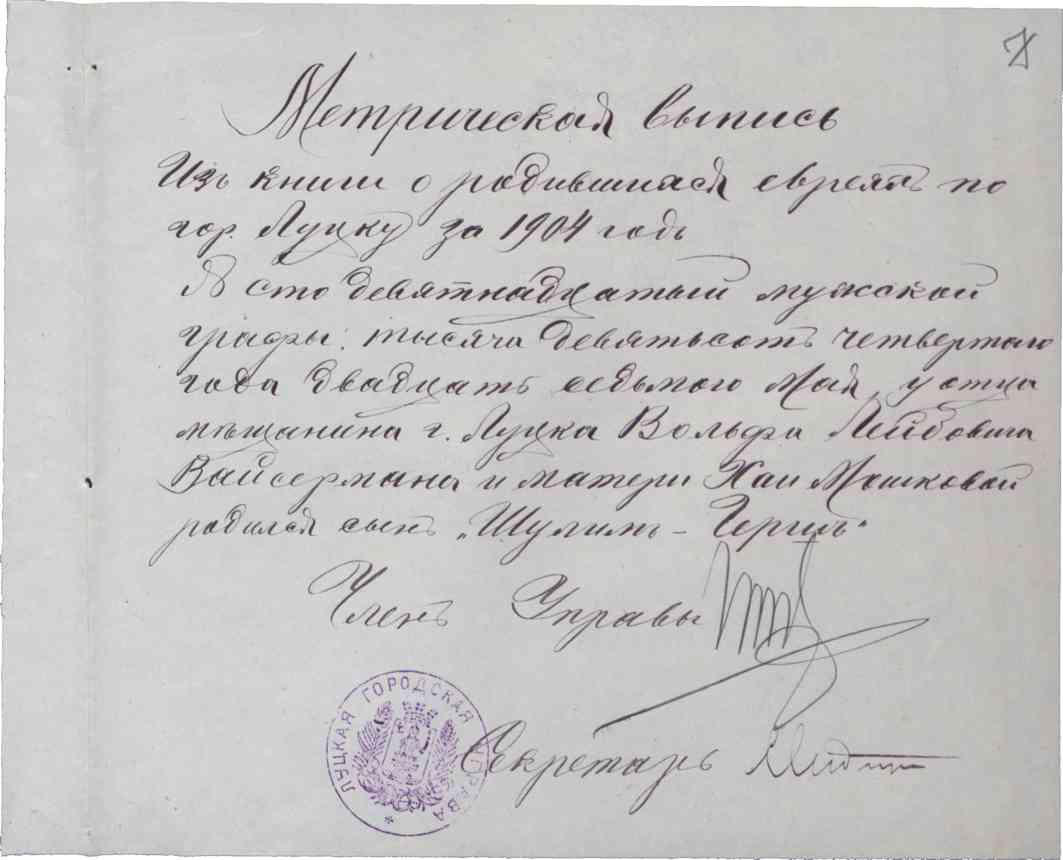 Метрическая выпись
Изъ книги о родившихся евреяхъ по
гор. Луцку за 1904 годъ
№ сто девятнадцатый мужской
графы: тысяча девятьсотъ четвертаго
года двадцать седьмого Мая, у отца
мѣщанина г. Луцка Вольфа Лейбовича
Вайсермана и матери Хаи Мошковой
родился сынъ „Шулимъ - Герицъ“
Членъ Управы
ЛУЦКАЯ ГОРОДСКАЯ УПРАВА
Секретарь